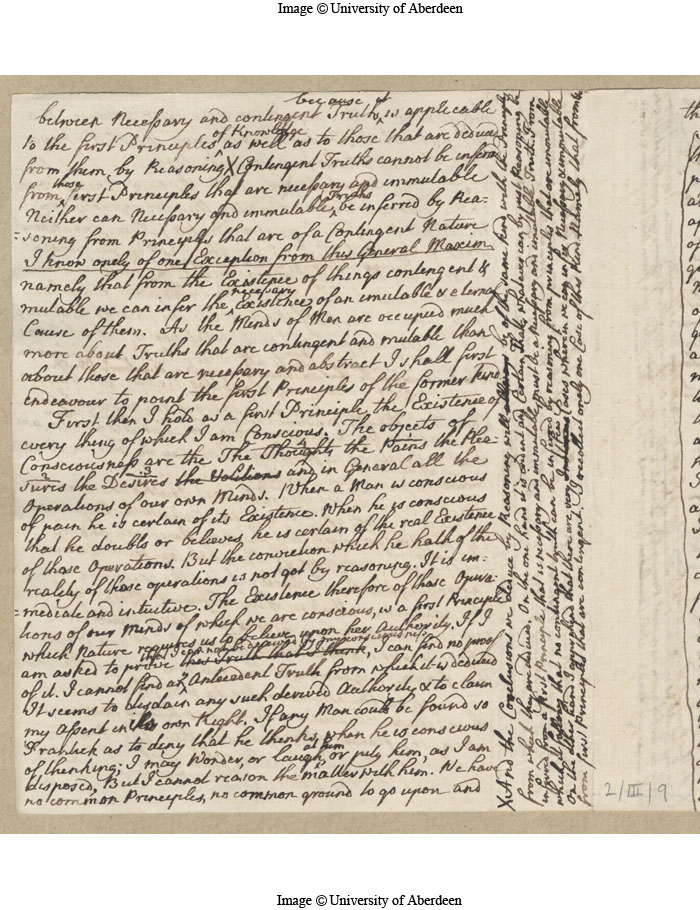 Image © University of Aberdeen
because it
between Necessary and contingent Truths is applicable
of Knowledge
to the first Principles as well as to those that are deduced
from them by Reasoning X Contingent Truths cannot be inferred
those
from first Principles that are necessary and immutable
Truths
Neither can Necessary and immutable be inferred by Rea-
= soning from Principles that are of a Contingent Nature
I know onely of one Exception from this General Maxim
namely that from the Existence of things contingent &
necessary
mutable we can infer the Existence of an imutable & eternal
Cause of them. As the Minds of Men are occupied much
more about Truths that are contingent and mutable than
about those that are necessary and abstract I shall first
Endeavour to point the first Principles of the former kind.
First then I hold as a first Principle, the Existence of
every thing of which I am Conscious. The objects of
Consciousness are the The Thoughts the Pains the Plea-
sures the Desires the Volitions and in General all the
Operations of our own Minds. When a Man is conscious
of pain he is certain of its Existence. When he is conscious
that he doubts or believes, he is certain of the real Existence
of those Operations. But the conviction which he hath of the
reality of those operations is not got by reasoning. It is im-
= mediate and intuitive. The Existence therefore of those Opera-
tions of our Minds of which we are conscious, is a first Principle
which Nature requires us to believe upon her Authority. If I
that I can not be deceived by my consciousness
am asked to prove this Truth that I think, I can find no proof
of it. I cannot find any Antecedent Truth from which it is deduced
It seems to disdain any such derived Authority & to claim
my Assent in its own Right. If any Man could be found so
Frantick as to deny that he thinks, when he is conscious
at him
of thinking; I may Wonder, or laugh or pity him, as I am
disposed, But I cannot reason the matter with him. We have
no common Principles, no common ground to go upon and
X And the Conclusions we deduce by Reasoning will be of the same kind with the Principles
from which they are deduced. On the one hand it is evident and Certain that whatever can by just Reasoning be
inferred from a first Principle that is necessary and immutable must be a necessary and immutable Truth. From
which it follows that no contingent truth can be inferred by reasoning from principles that are immutable
On the other hand I apprehend that there are very Cases wherein we can infer Necessary immutable
from first Principles that are contingent. I recollect onely one Case of this kind Namely that from
2/III/9
Image © University of Aberdeen